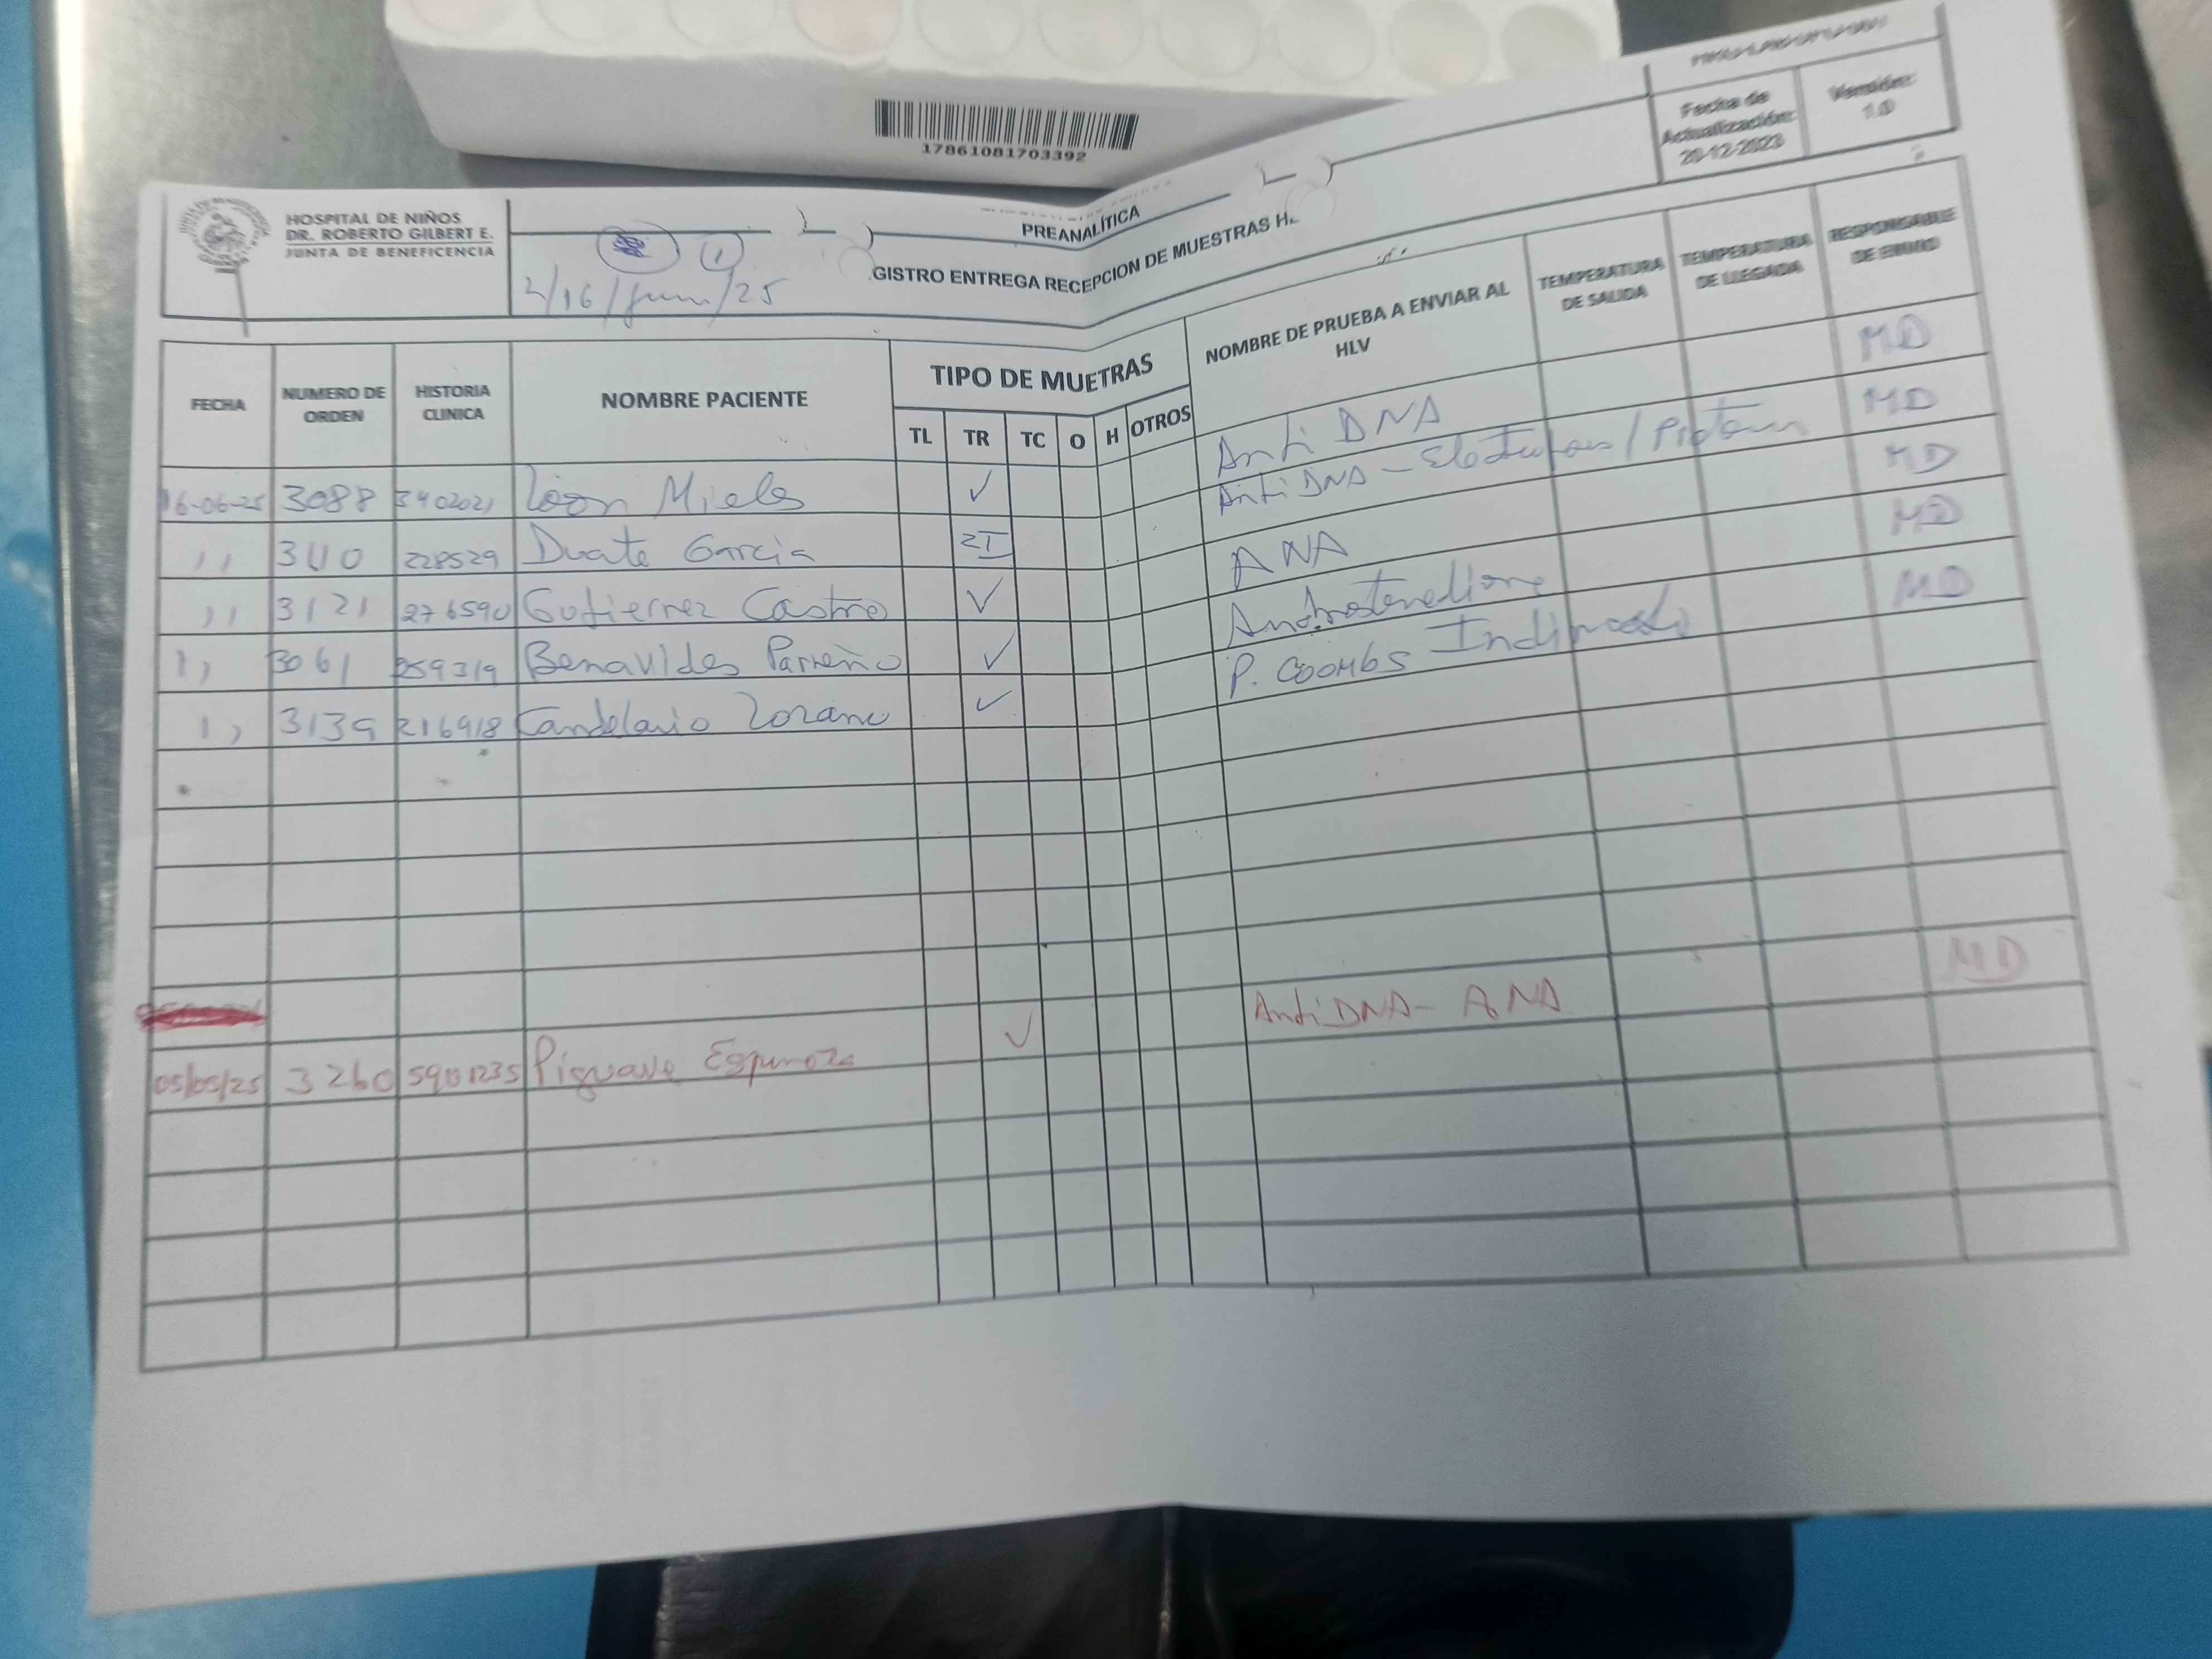 17861081703392
Fecha de Actualización: 20-12-2023
Versión: 1.0
HOSPITAL DE NIÑOS
DR. ROBERTO GILBERT E.
JUNTA DE BENEFICENCIA
1
2/16/jun/25
PREANALÍTICA
GISTRO ENTREGA RECEPCION DE MUESTRAS H
FECHA NUMERO DE ORDEN HISTORIA CLINICA NOMBRE PACIENTE TIPO DE MUETRAS NOMBRE DE PRUEBA A ENVIAR AL HLV TEMPERATURA DE SALIDA TEMPERATURA DE LLEGADA RESPONSABLE DE ENVIO
TL TR TC O H OTROS
16-06-25 3088 3402021 Miels ✓ Anti DNA MD
,, 3110 228529 Duate Garcia Anti DNA - MD
,, 3121 276590 Gutierrez Castro ✓ ANA MD
,, 3061 259319 Benavides Parreño ✓ Androstenedione MD
,, 3139 216918 Candelario Lozano ✓ P. Coombs Indirecto MD
05/05/25 3260 5901235 Piguave Espinoza ✓ Anti DNA - ANA MD